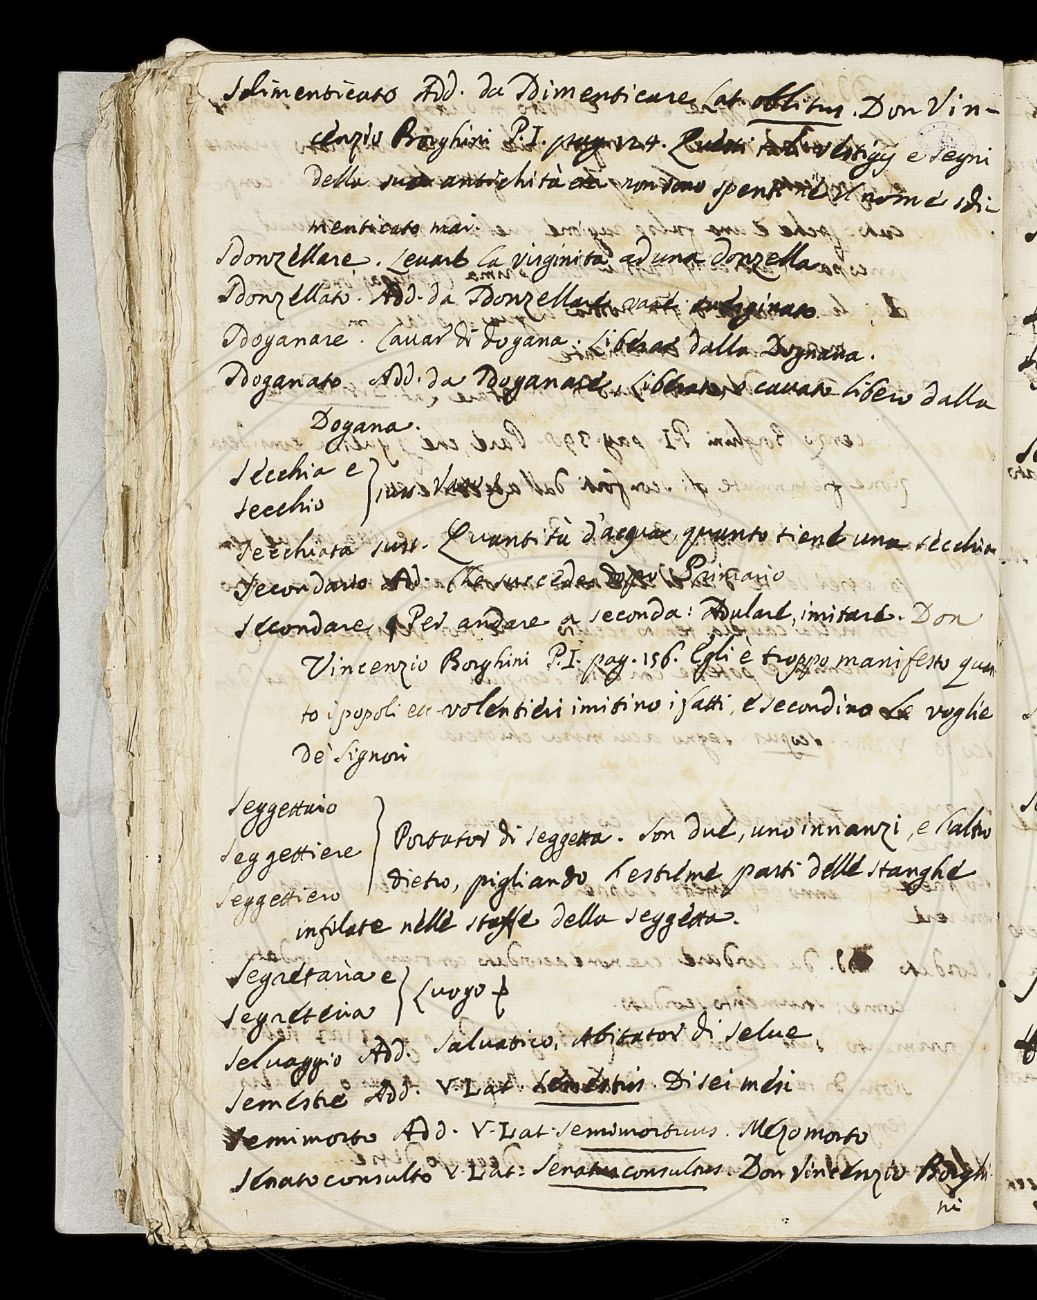 Sdimenticato Add. da Dimenticare Lat. oblitus. Don Vin-
cenzio Borghini P. I. pag. 124. Questi tali vestigij e segni
della sua antichità non sono spenti nè il nome sdi-
menticato mai.
Sdonzellare. Levare la virginità ad una donzella
Sdonzellato. Add. da Sdonzellare
Sdoganare. Cavar di dogana. Liberar dalla Dognana.
Sdoganato. Add. da Sdoganare, Liberato, o cavato libero dalla
Dogana.
Secchia e
Secchio
Secchiata sust. Quantità d'acqua, quanto tiene una secchia
Secondario Ad. Che succede dopo Primario
Secondare, Per andare a seconda: Adulare, imitare. Don
Vincenzio Borghini P. I. pag. 156. Egli è troppo manifesto quan
to i popoli volentieri imitino i fatti, e secondino le voglie
de' Signori
Seggettaio
Seggettiere
Seggettiero
Portator di seggetta. Son due, uno innanzi, e l'altro
dietro, pigliando l'estreme parti delle stanghe
infilate nelle staffe della seggetta.
Segretaria e
Segreteria
Luogo
Selvaggio Add. Salvatico, Abitator di selve
Semestre Add. V. Lat. Semestris. Di sei mesi
Semimorto Add. V. Lat. Semimortuus. Mezo morto
Senatoconsulto V. Lat: Senatusconsultus. Don Vincenzio Borghi
ni